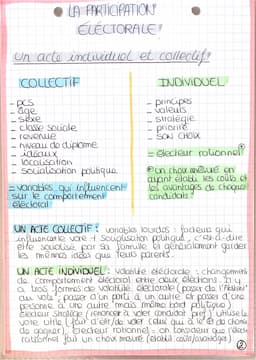 LA PARTICIPATION
ÉLÉCTORALE
un acte individuel et collectif
COLLECTIF
- PCS
- âge
- sexe
- classe sociale
- revenue
- niveau de diplôme
- idéaux
- localisation
- socialisation politique
= variables qui influencent
sur le comportement
éléctoral
INDIVIDUEL
- principes
- valeurs
- stratégie
- priorité
- son choix
= électeur rationnel
un choix mesuré en
ayant établi les coûts et
les avantages de chaque
candidats
UN ACTE COLLECTIF : variables lourdes : facteur qui
influencent le vote + socialisation politique, c'est-à-dire
être socialisé par sa famille et généralement garder
les mêmes idées que leurs parents.
UN ACTE INDIVIDUEL : volatilité éléctorale : changement
de comportement éléctoral entre deux élections. Il y
a trois formes de volatilité éléctorale (passer de l'abstention
au vote, passer d'un parti à un autre et passer d'une
personne à une autre mais même bord politique)
Électeur stratège (renoncer à voter candidat préf) utilise le
vote utile (fait de voter celui qui a le de chance
de gagner). Électeur rationnel = un électeur qui
fait un choix mesuré (établi coûts/avantages)
2